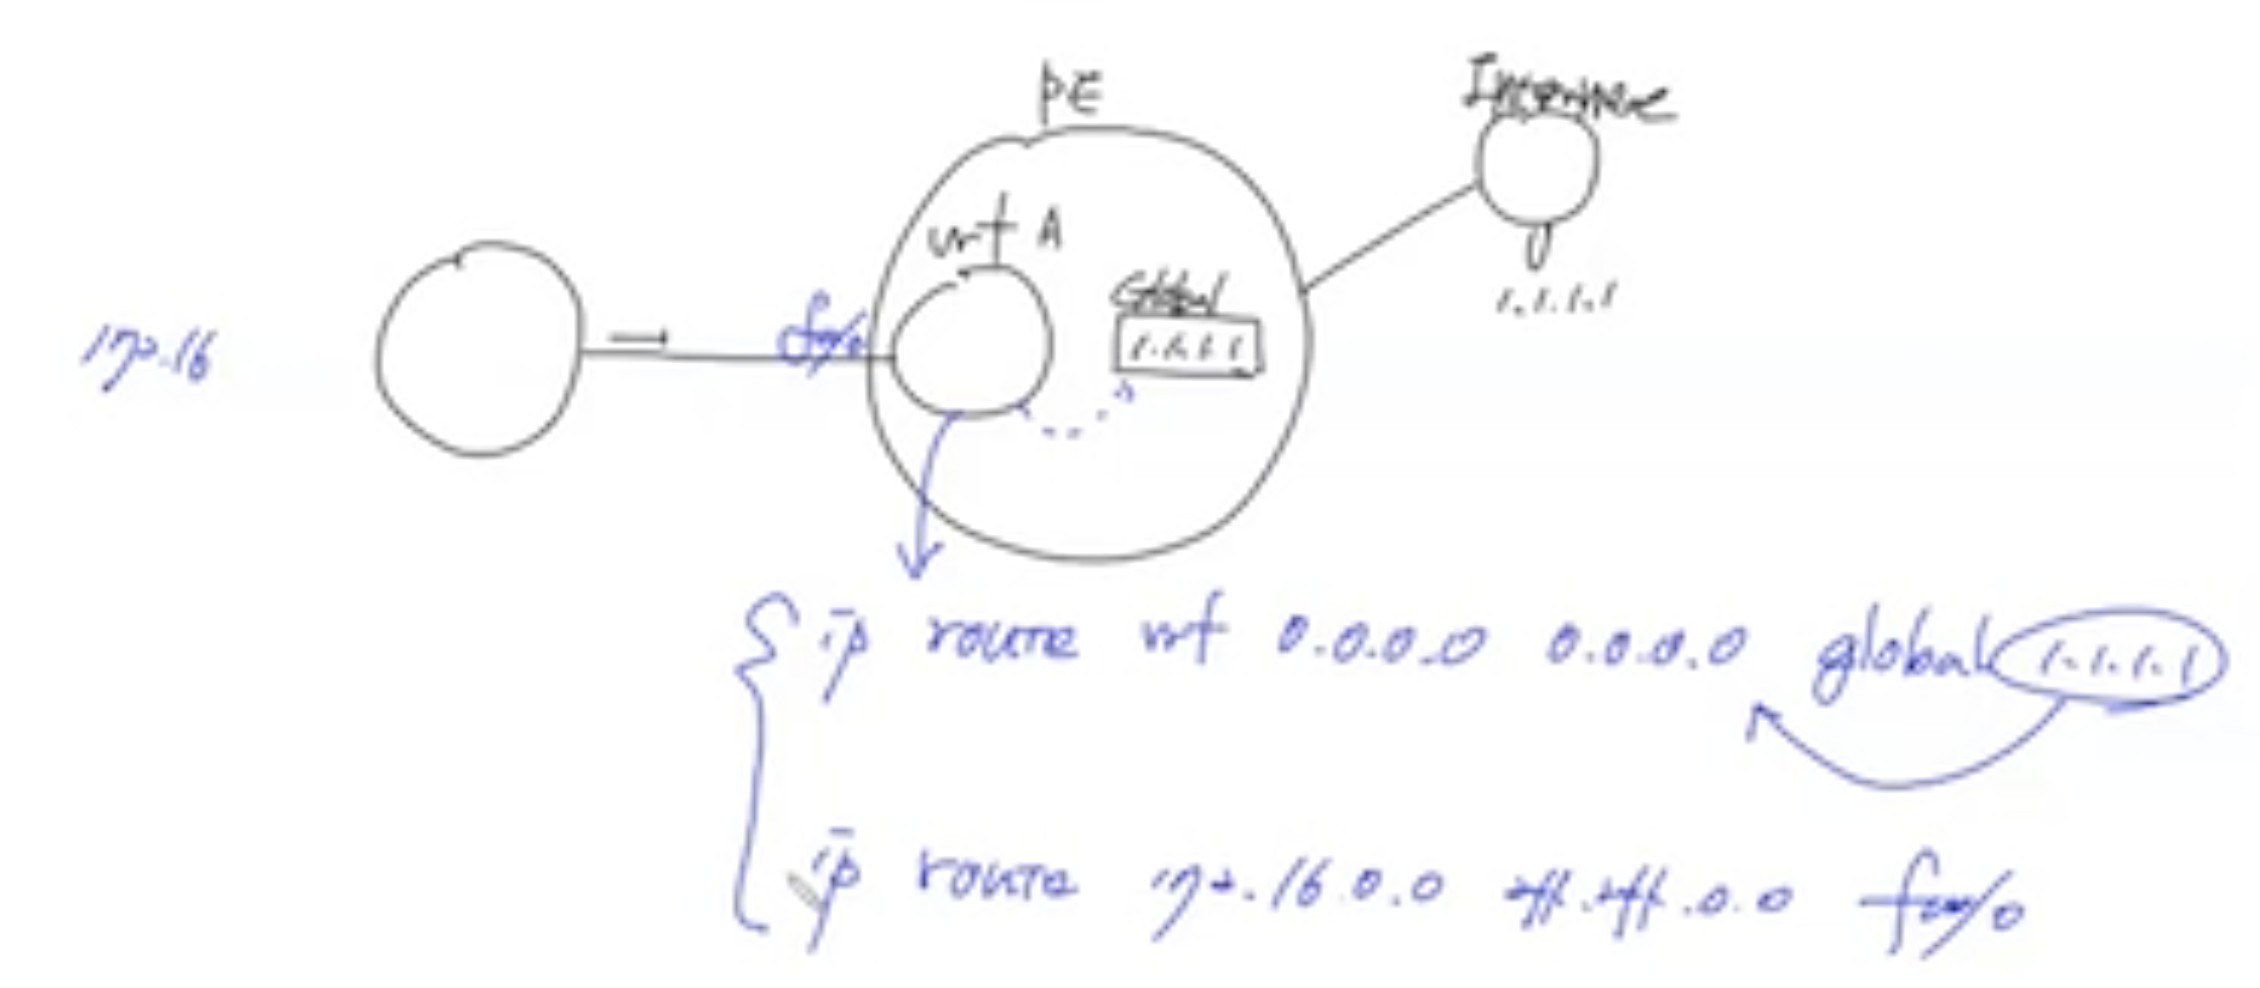 PE
Internet
vrf A
Global
1.1.1.1
1.1.1.1
172.16
f0/0
ip route vrf 0.0.0.0 0.0.0.0 global 1.1.1.1
ip route 172.16.0.0 255.255.0.0 f0/0